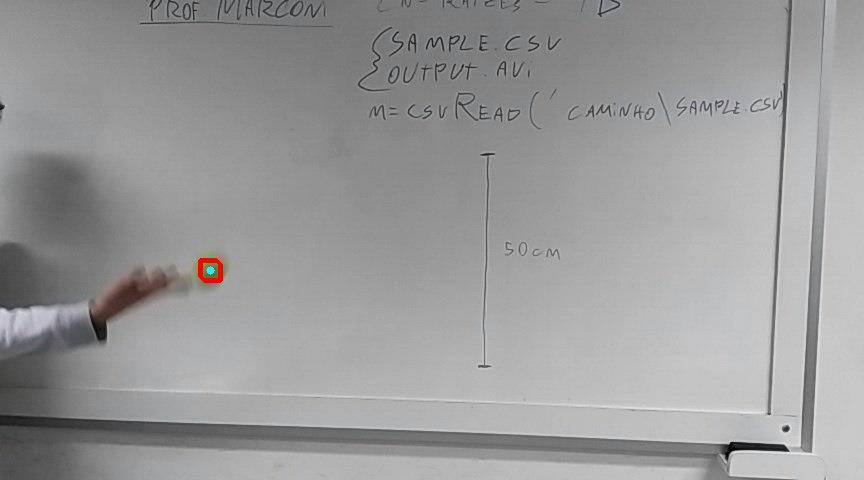 PROF MARCOM
SAMPLE.CSV
OUTPUT.AVi
M=CSVREAD('CAMINHO\SAMPLE.CSV
50cm